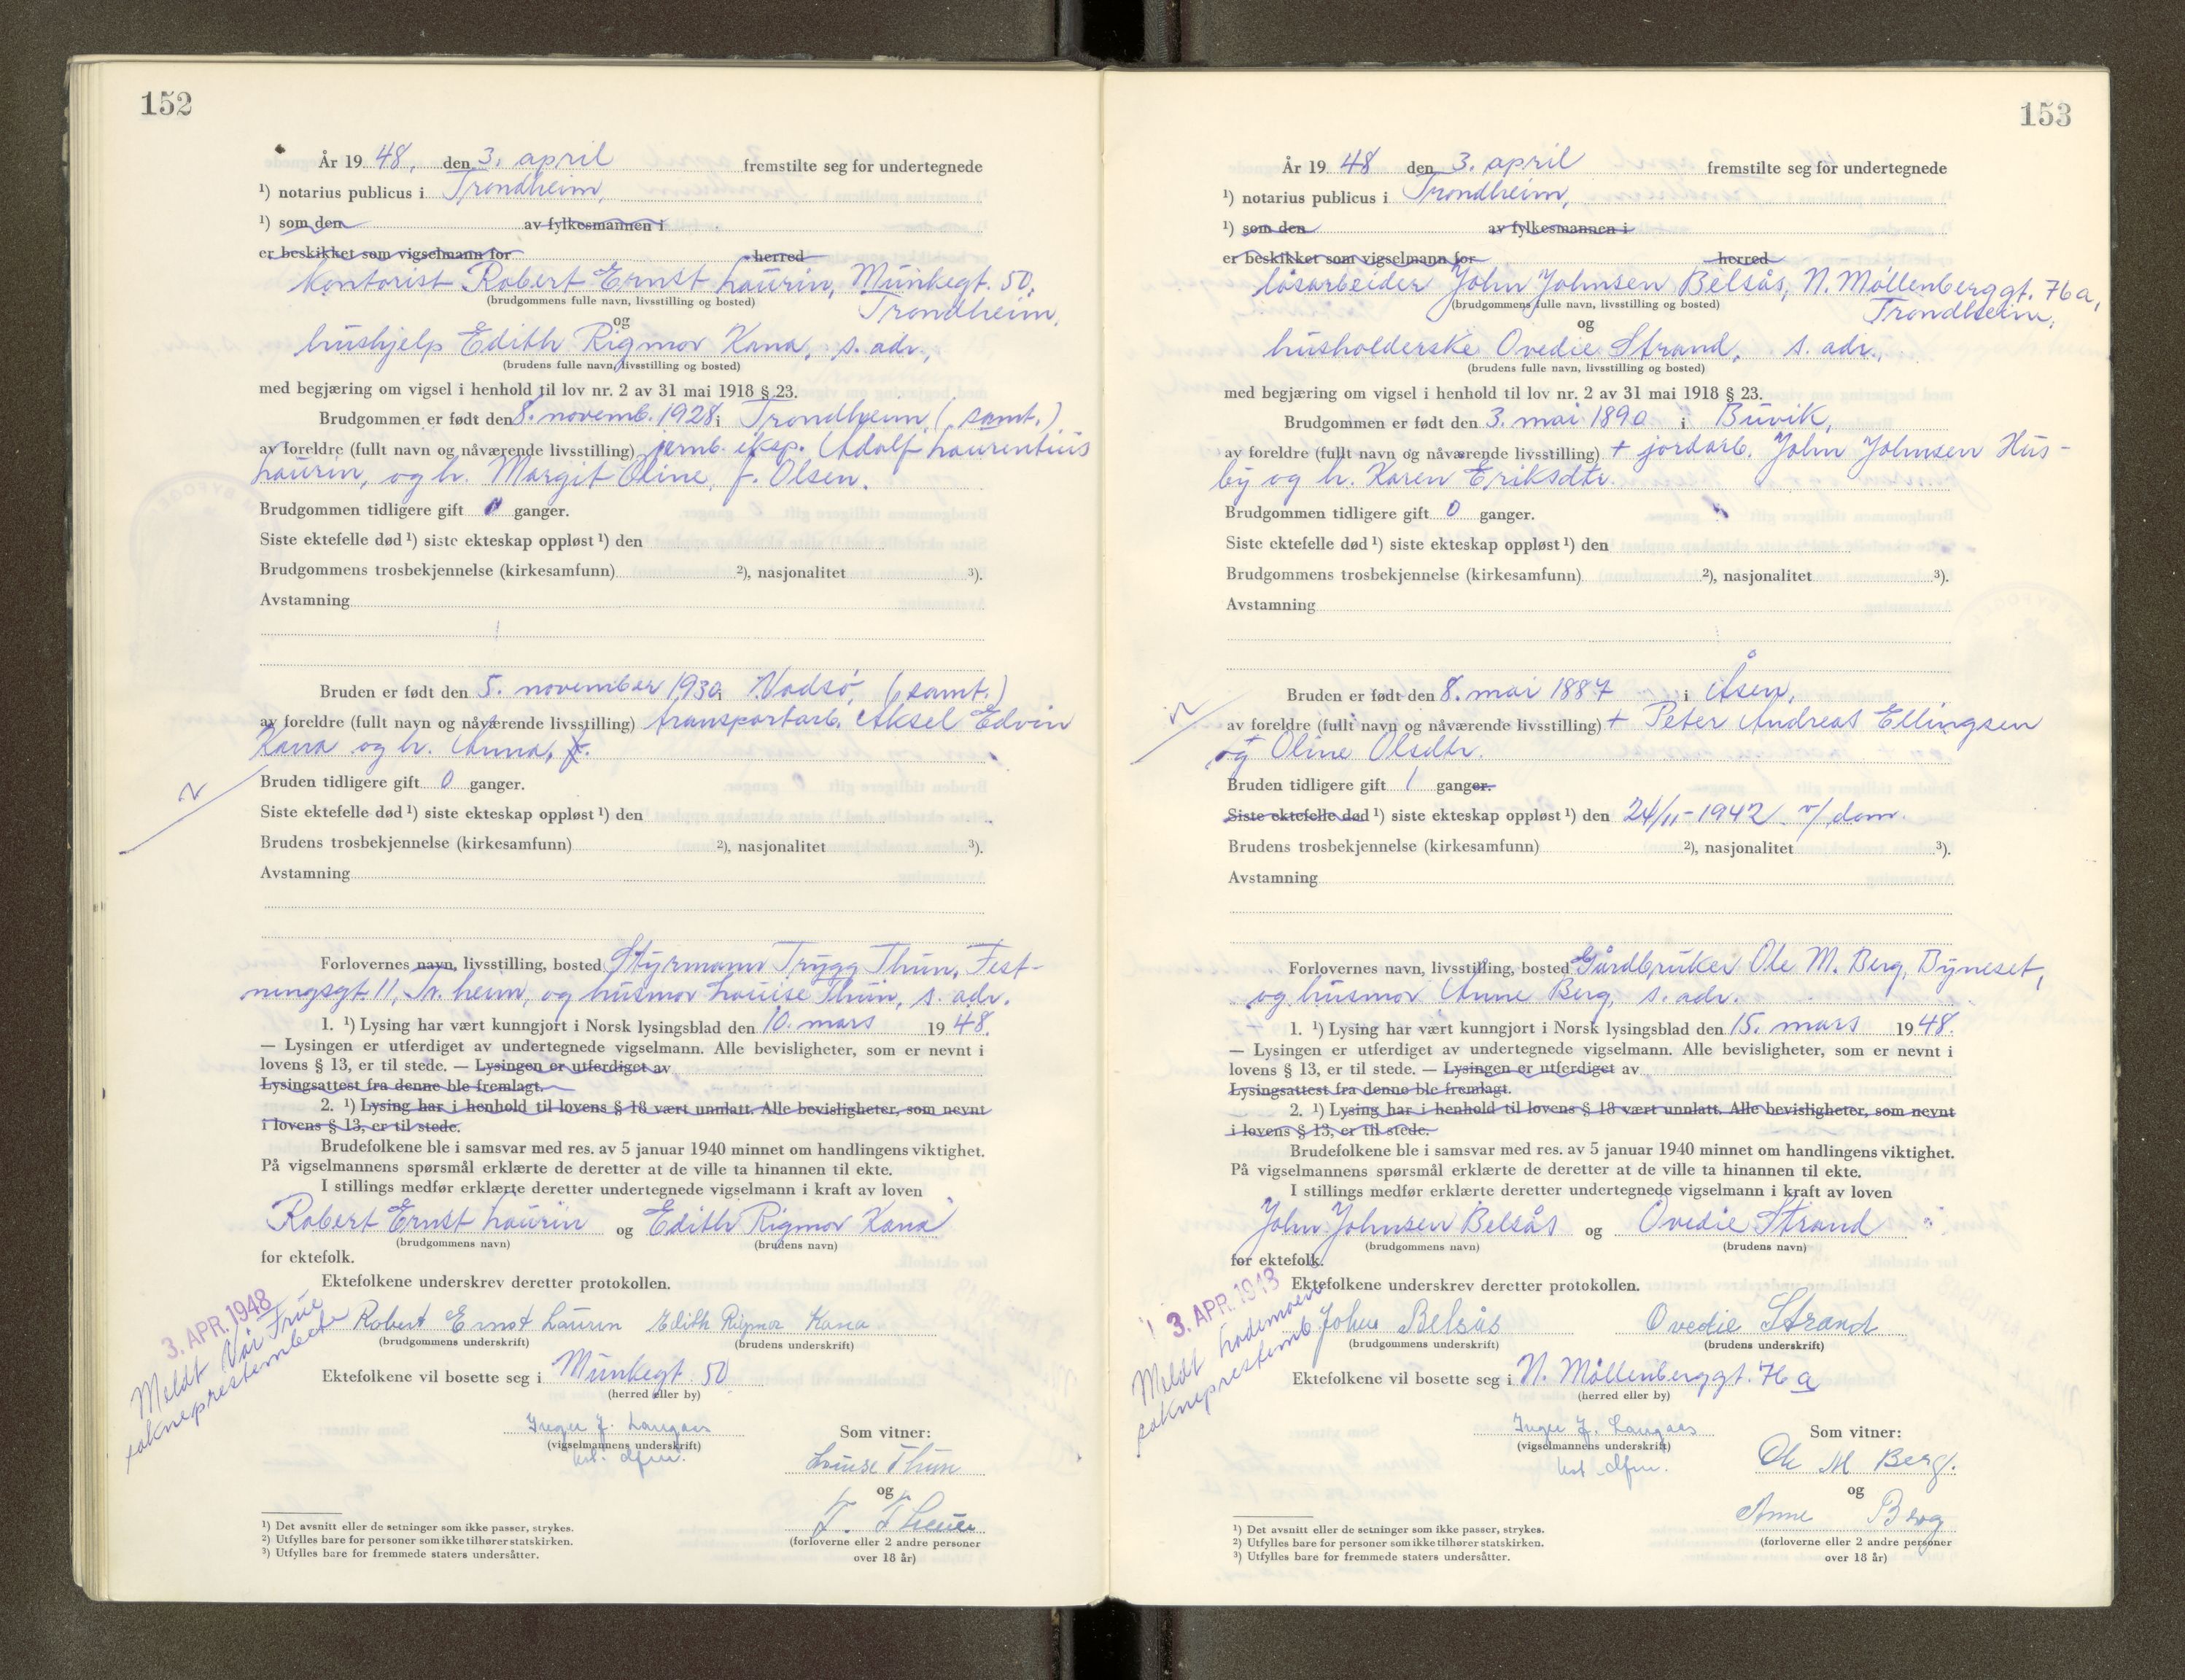 152
År 19 48, den 3. april fremstilte seg for undertegnede
¹) notarius publicus i Trondheim,
¹) som den av fylkesmannen i
er beskikket som vigselmann for herred
kontorist Robert Ernst Laurin, Munkegt. 50,
(brudgommens fulle navn, livsstilling og bosted) Trondheim,
og
hushjelp Edith Rigmor Kana, s. adr.,
(brudens fulle navn, livsstilling og bosted)
med begjæring om vigsel i henhold til lov nr. 2 av 31 mai 1918 § 23.
Brudgommen er født den 8. novemb. 1928 i Trondheim, (samt.)
av foreldre (fullt navn og nåværende livsstilling) jernb. eksp. Adolf Laurentius
Laurin, og h. Margit Oline, f. Olsen.
Brudgommen tidligere gift 0 ganger.
Siste ektefelle død ¹) siste ekteskap oppløst ¹) den
Brudgommens trosbekjennelse (kirkesamfunn) ²), nasjonalitet ³).
Avstamning
Bruden er født den 5. november 1930 i Vadsø, (samt.)
av foreldre (fullt navn og nåværende livsstilling) transportarb. Aksel Edvin
Kana og h. Anna, f.
Bruden tidligere gift 0 ganger.
Siste ektefelle død ¹) siste ekteskap oppløst ¹) den
Brudens trosbekjennelse (kirkesamfunn) ²), nasjonalitet ³).
Avstamning
Forlovernes navn, livsstilling, bosted Styrmann Trygg Thun, Fest-
ningsgt. 11, Tr.heim, og husmor Louise Thun, s. adr.
1. ¹) Lysing har vært kunngjort i Norsk lysingsblad den 10. mars 1948.
— Lysingen er utferdiget av undertegnede vigselmann. Alle bevisligheter, som er nevnt i
lovens § 13, er til stede. — Lysingen er utferdiget av
Lysingsattest fra denne ble fremlagt.
2. ¹) Lysing har i henhold til lovens § 18 vært unnlatt. Alle bevisligheter, som nevnt
i lovens § 13, er til stede.
Brudefolkene ble i samsvar med res. av 5 januar 1940 minnet om handlingens viktighet.
På vigselmannens spørsmål erklærte de deretter at de ville ta hinannen til ekte.
I stillings medfør erklærte deretter undertegnede vigselmann i kraft av loven
Robert Ernst Laurin og Edith Rigmor Kana
(brudgommens navn) (brudens navn)
for ektefolk.
Ektefolkene underskrev deretter protokollen.
3. APR. 1948
Meldt Vår Frue
sokneprestembete
Robert Ernst Laurin Edith Rigmor Kana
(brudgommens underskrift) (brudens underskrift)
Ektefolkene vil bosette seg i Munkegt. 50
(herred eller by)
Inger J. Langaas
(vigselmannens underskrift)
Som vitner:
Louise Thun
og
T. Thun
(forloverne eller 2 andre personer
over 18 år)
¹) Det avsnitt eller de setninger som ikke passer, strykes.
²) Utfylles bare for personer som ikke tilhører statskirken.
³) Utfylles bare for fremmede staters undersåtter.
153
År 19 48 den 3. april fremstilte seg for undertegnede
¹) notarius publicus i Trondheim,
¹) som den av fylkesmannen i
er beskikket som vigselmann for herred
låsarbeider John Johnsen Belsås, N. Møllenberggt. 76a,
(brudgommens fulle navn, livsstilling og bosted) Trondheim,
og
husholderske Ovedie Strand, s. adr.,
(brudens fulle navn, livsstilling og bosted)
med begjæring om vigsel i henhold til lov nr. 2 av 31 mai 1918 § 23.
Brudgommen er født den 3. mai 1890 i Buvik,
av foreldre (fullt navn og nåværende livsstilling) + jordarb. John Johnsen Hus-
by og h. Karen Eriksdtr.
Brudgommen tidligere gift 0 ganger.
Siste ektefelle død ¹) siste ekteskap oppløst ¹) den
Brudgommens trosbekjennelse (kirkesamfunn) ²), nasjonalitet ³).
Avstamning
Bruden er født den 8. mai 1887 i Åsen,
av foreldre (fullt navn og nåværende livsstilling) + Peter Andreas Ellingsen
og Oline Olsdtr.
Bruden tidligere gift 1 ganger.
Siste ektefelle død ¹) siste ekteskap oppløst ¹) den 24/11-1942 v/ dom.
Brudens trosbekjennelse (kirkesamfunn) ²), nasjonalitet ³).
Avstamning
Forlovernes navn, livsstilling, bosted Gårdbruker Ole M. Berg, Byneset,
og husmor Anne Berg, s. adr.
1. ¹) Lysing har vært kunngjort i Norsk lysingsblad den 15. mars 1948.
— Lysingen er utferdiget av undertegnede vigselmann. Alle bevisligheter, som er nevnt i
lovens § 13, er til stede. — Lysingen er utferdiget av
Lysingsattest fra denne ble fremlagt.
2. ¹) Lysing har i henhold til lovens § 18 vært unnlatt. Alle bevisligheter, som nevnt
i lovens § 13, er til stede.
Brudefolkene ble i samsvar med res. av 5 januar 1940 minnet om handlingens viktighet.
På vigselmannens spørsmål erklærte de deretter at de ville ta hinannen til ekte.
I stillings medfør erklærte deretter undertegnede vigselmann i kraft av loven
John Johnsen Belsås og Ovedie Strand
(brudgommens navn) (brudens navn)
for ektefolk.
Ektefolkene underskrev deretter protokollen.
3. APR. 1948
Meldt Lademoen
sokneprestemb.
John Belsås Ovedie Strand
(brudgommens underskrift) (brudens underskrift)
Ektefolkene vil bosette seg i N. Møllenberggt. 76 a
(herred eller by)
Inger J. Langaas
(vigselmannens underskrift)
Som vitner:
Ole M Berg.
og
Anne Berg
(forloverne eller 2 andre personer
over 18 år)
¹) Det avsnitt eller de setninger som ikke passer, strykes.
²) Utfylles bare for personer som ikke tilhører statskirken.
³) Utfylles bare for fremmede staters undersåtter.